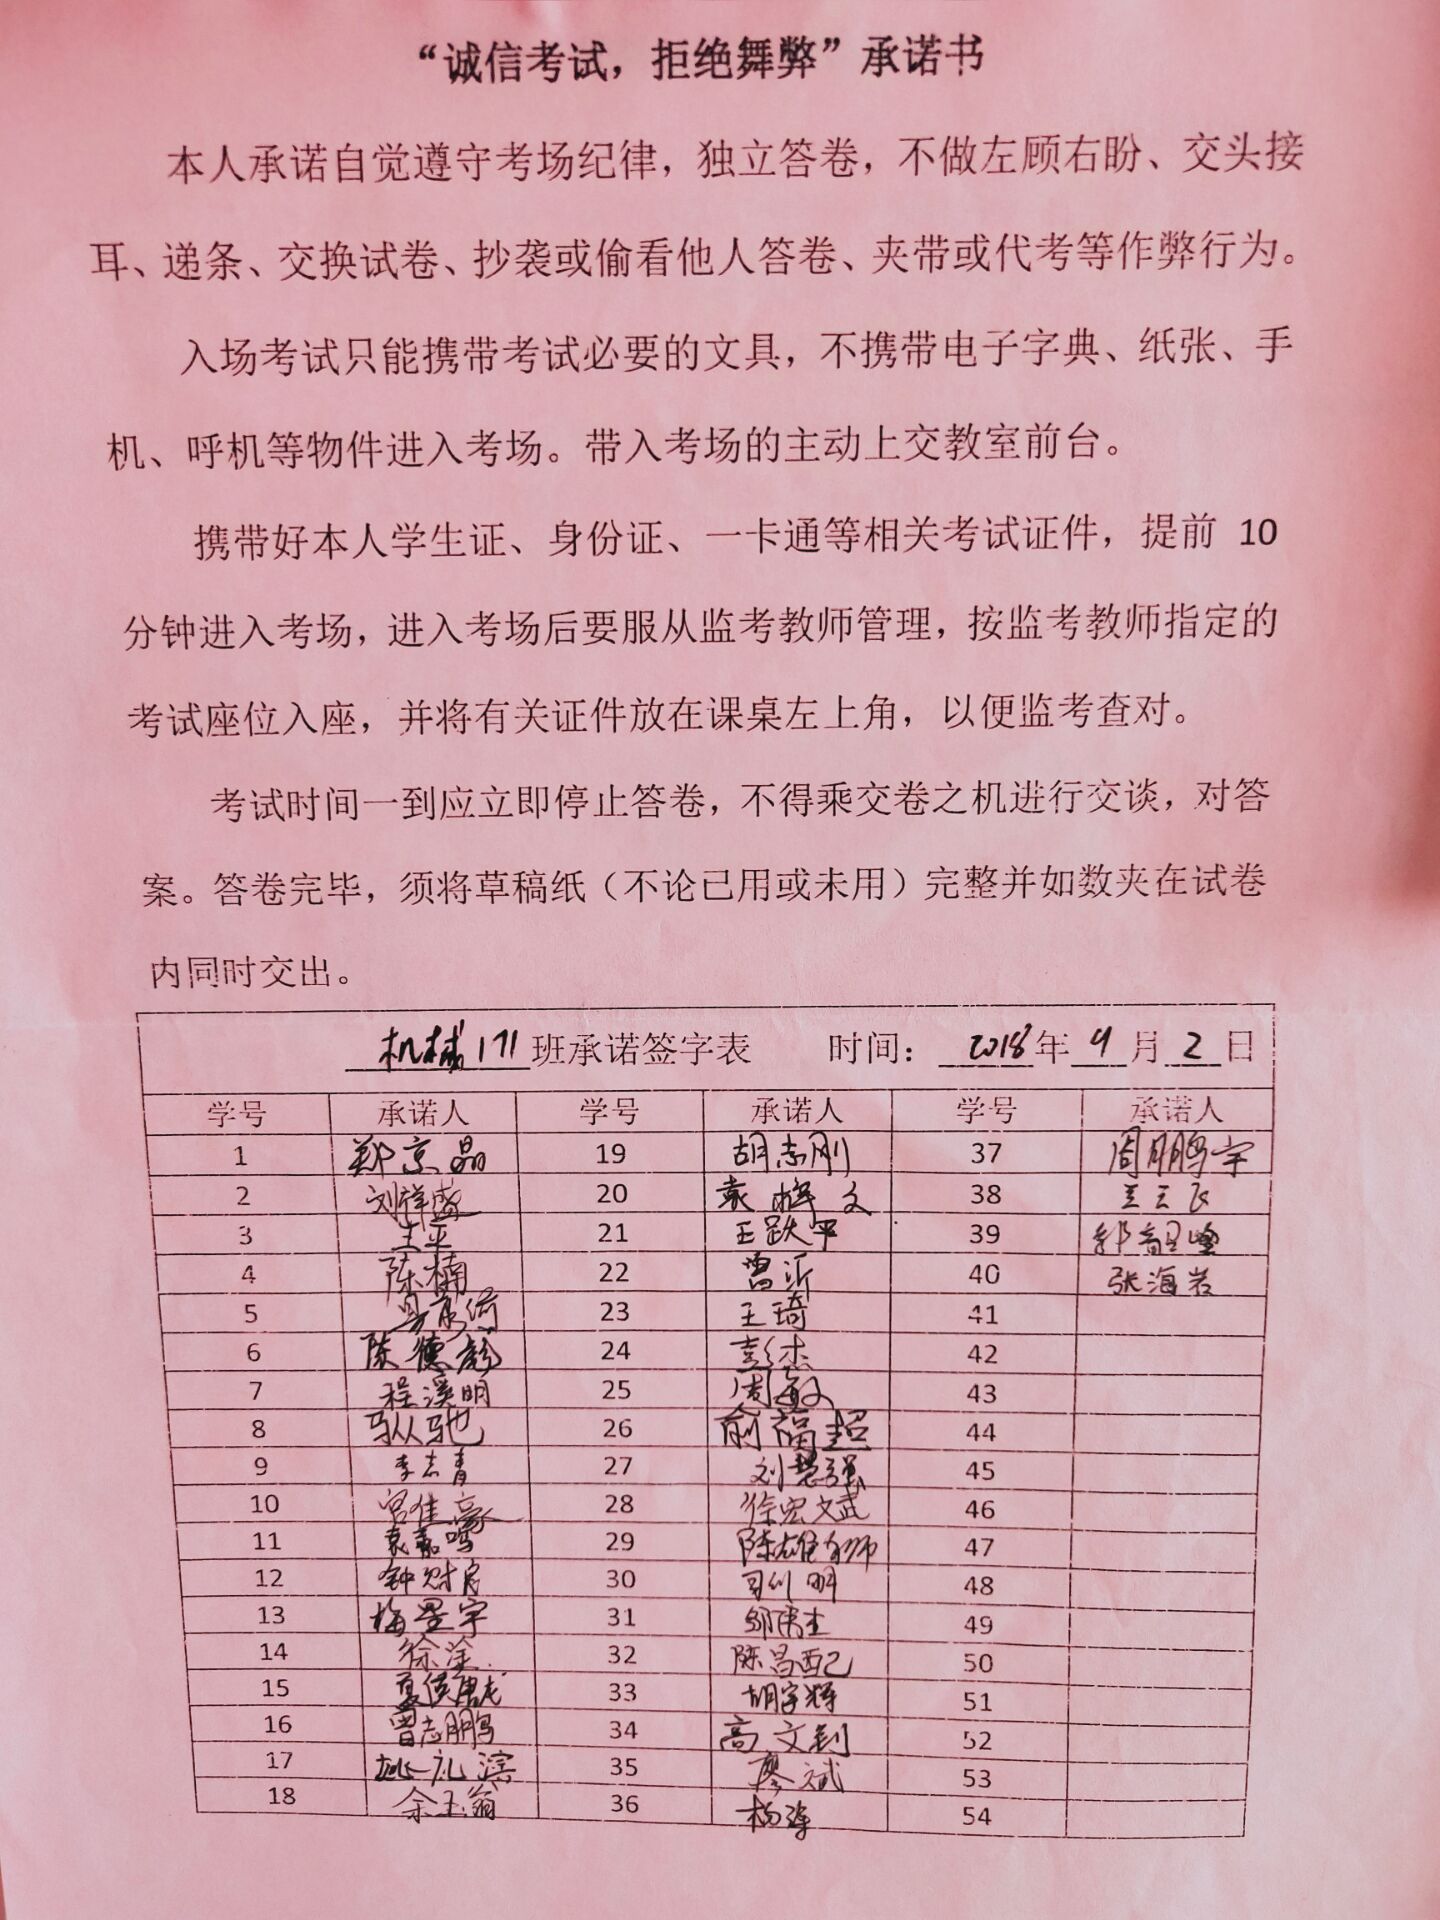 “诚信考试，拒绝舞弊”承诺书
本人承诺自觉遵守考场纪律，独立答卷，不做左顾右盼、交头接
耳、递条、交换试卷、抄袭或偷看他人答卷、夹带或代考等作弊行为。
入场考试只能携带考试必要的文具，不携带电子字典、纸张、手
机、呼机等物件进入考场。带入考场的主动上交教室前台。
携带好本人学生证、身份证、一卡通等相关考试证件，提前 10
分钟进入考场，进入考场后要服从监考教师管理，按监考教师指定的
考试座位入座，并将有关证件放在课桌左上角，以便监考查对。
考试时间一到应立即停止答卷，不得乘交卷之机进行交谈，对答
案。答卷完毕，须将草稿纸（不论已用或未用）完整并如数夹在试卷
内同时交出。
机械171班承诺签字表 时间：2018年9月2日
学号 承诺人 学号 承诺人 学号 承诺人
1 郑京晶 19 胡志刚 37 周鹏宇
2 刘祥盛 20 袁梓文 38 王云飞
3 王平 21 王跃平 39
4 陈楠 22 曾沂 40 张海岩
5 23 王琦 41
6 陈德彪 24 彭杰 42
7 程溪明 25 周敏 43
8 26 俞福超 44
9 李志青 27 刘慧强 45
10 官佳豪 28 徐宏斌 46
11 袁嘉鸣 29 47
12 钟财良 30 48
13 梅星宇 31 邹伟杰 49
14 徐淦 32 陈昌配 50
15 夏侯唐龙 33 胡宇辉 51
16 曾志鹏 34 高文钊 52
17 姚礼滨 35 廖斌 53
18 余玉翁 36 杨海 54